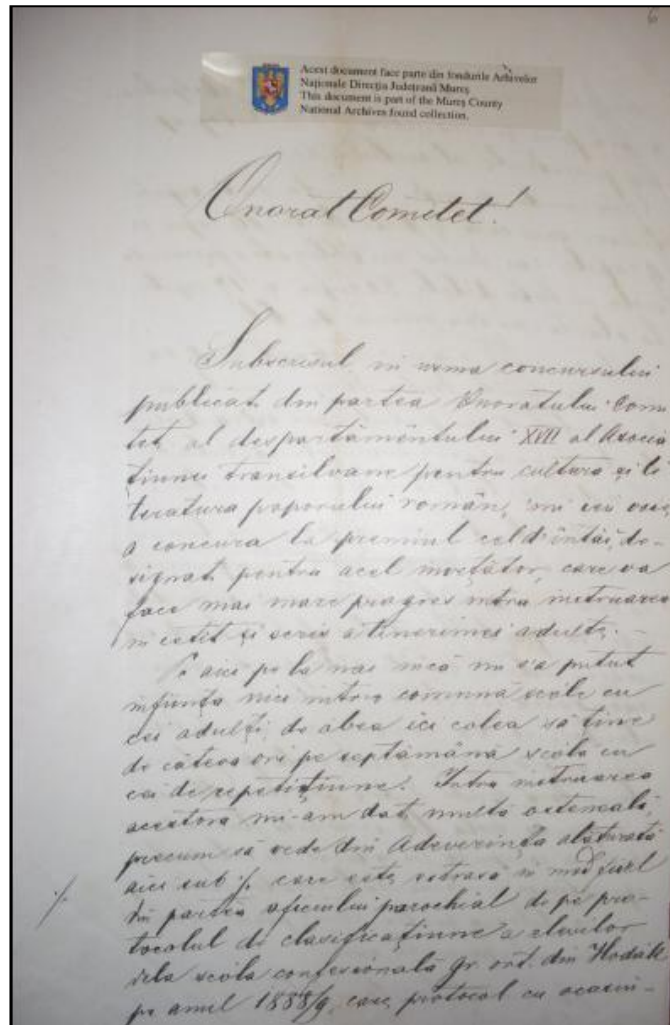 6
Acest document face parte din fondurile Arhivelor
Naționale Direcția Județeană Mureș
This document is part of the Mureș County
National Archives found collection.
Onorat Comitet!
Subscrisul in urma concursului
publicat din partea Onoratului Comi
tet al despartamêntului XVII al Asocia
țiunei transilvane pentru cultura și li
teratura poporului român, 'mi iau voie
a concura la premiul cel d'intâi, de-
signat pentru acel care va
face mai mare progres intru instruarea
in cetit și scris a tinerimei adulte. –
P' aici pe la noi incă nu s'a putut
inființa nici intr'o comună scóle cu
cei adulți, de abea ici colea să tine
de câteva ori pe septămână scóla cu
cei de repetițiune. Intru instruarea
acestora mi-am dat multă osteneală,
precum să vede din Adeverința alăturată
aici sub ·/. care este estrasă in mod
·/.
din partea oficiului parochial de pe pro-
tocolul de clasificațiune a elevilor
dela scóla confesională gr. ort. din Hodák
pe anul 1888/9, care protocol cu ocasiu-